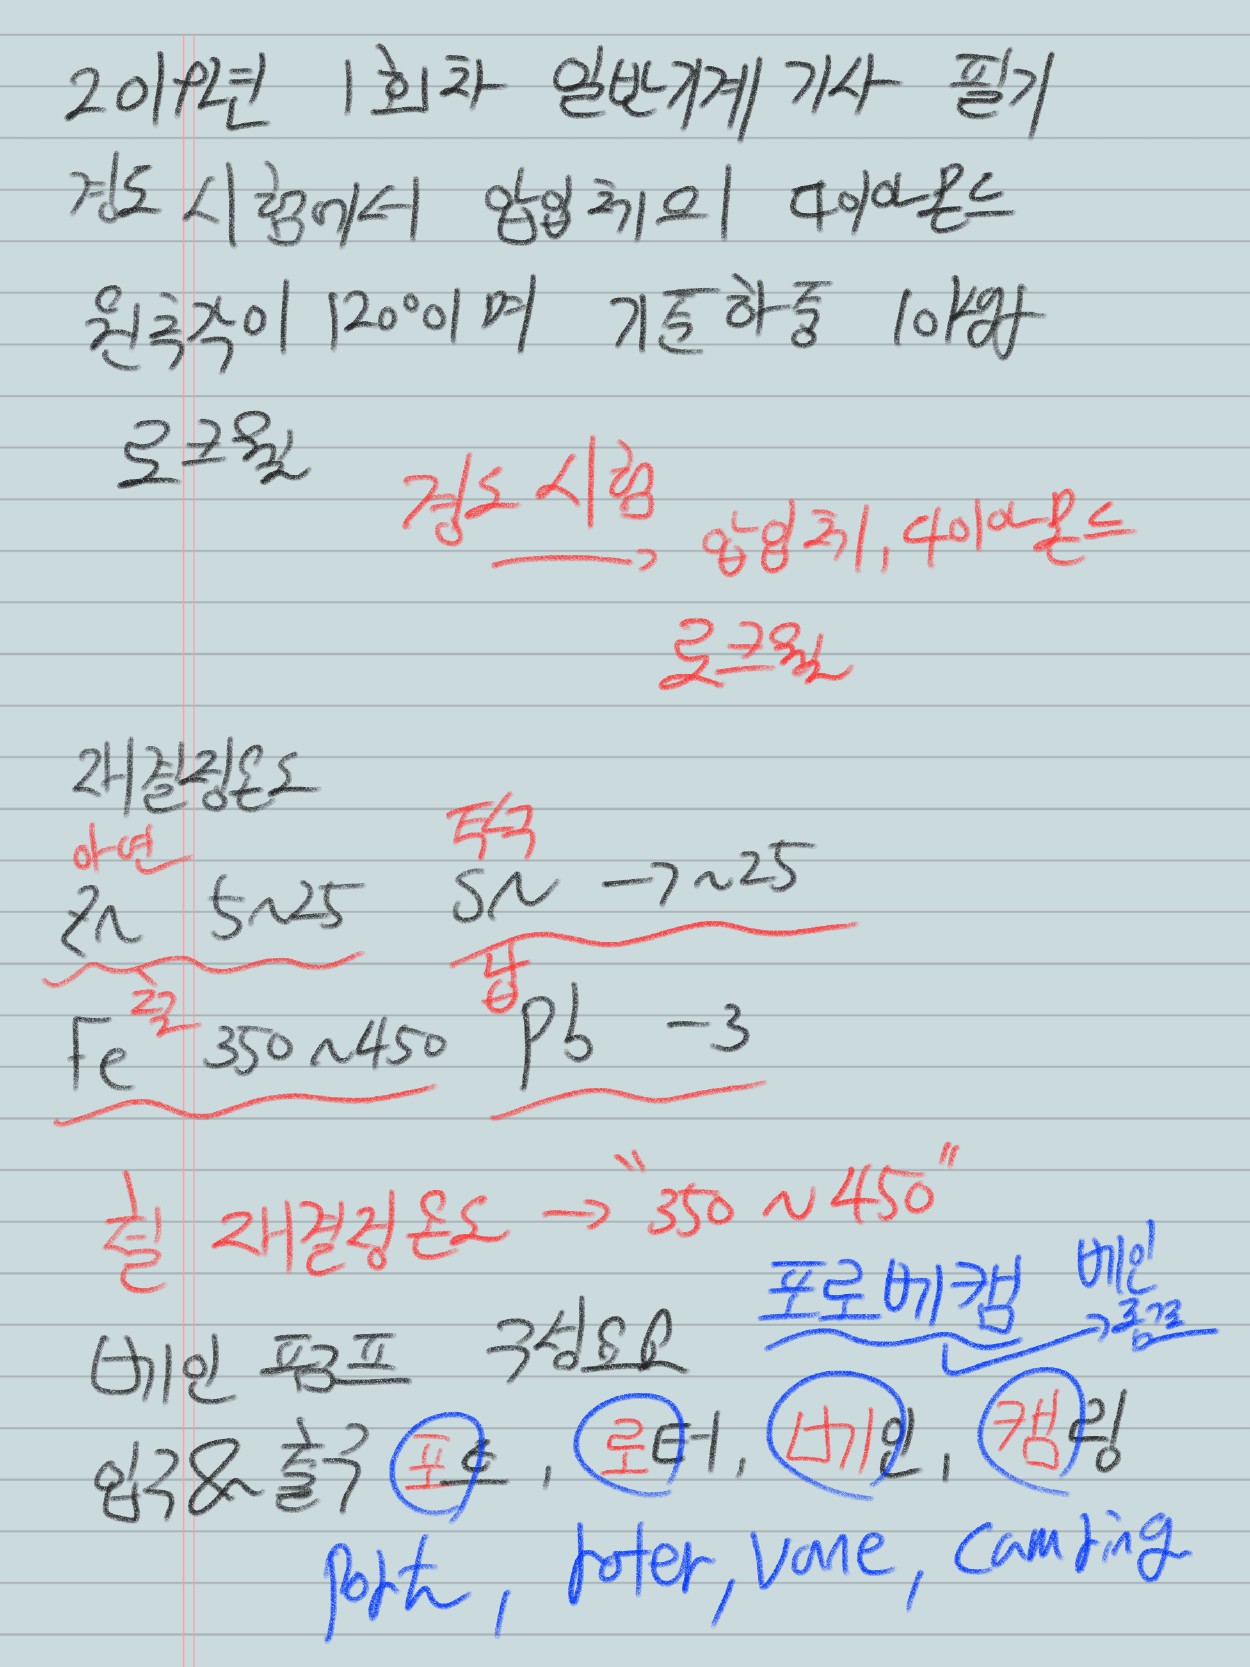 2019년 1회차 일반기계기사 필기
경도 시험에서 압입체의 다이아몬드
원추각이 120°이며 기준하중 10
로크웰
경도시험
→ 압입체, 다이아몬드
로크웰
재결정온도
아연 주석
Zn 5~25 Sn -7~25
철 납
Fe 350~450 Pb -3
철 재결정온도 → "350~450"
포로베캠 베인
→ 펌프
베인 펌프 구성요소
입구&출구 포트, 로터, 베인, 캠링
port, roter, vane, camring